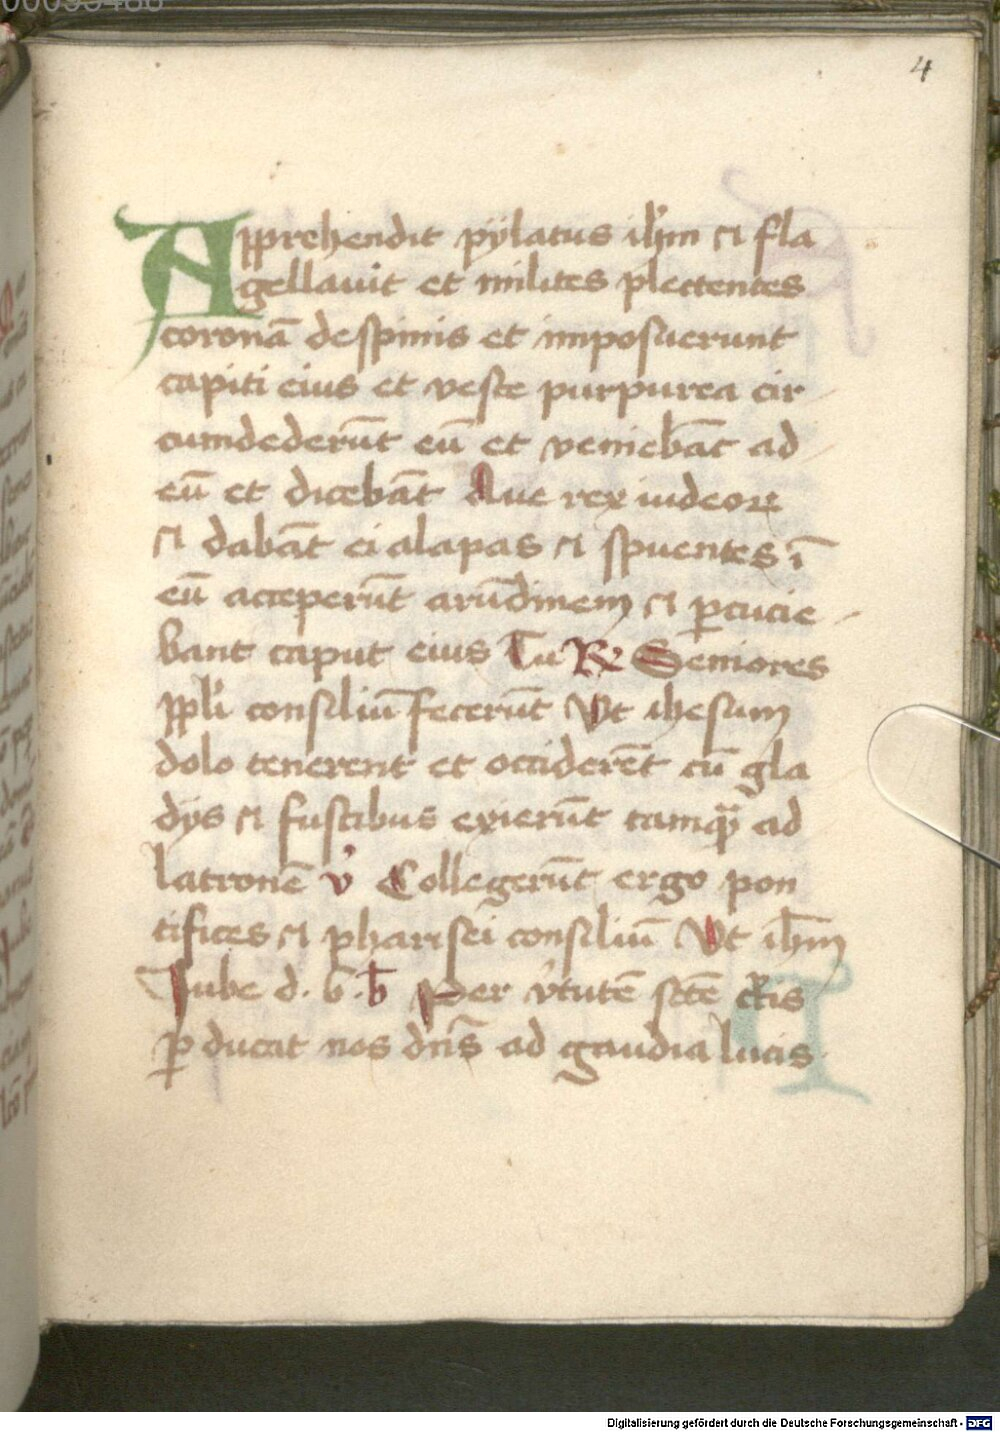 4
Apprehendit pÿlatus ih̄m et fla
gellauit et milites plectentes
coronā despinis et imposuerunt
capiti eius et veste purpurea cir
cumdederūt eū et veniebāt ad
eū et dicebāt Aue rex iudeoꝝ
et dabāt ei alapas et spuentes ī
eū acceperūt arūdinem et ꝑcucie
bant caput eius Tu ℟ Seniores
ppl'i consiliū fecerūt Vt ihesum
dolo tenerent et occiderēt cū gla
dÿs et fustibus exierūt tamq̄ ad
latronē v̓ Collegerūt ergo pon
tifices et pharisei consiliū Vt ih̄m
Jube d. b̄ . b̄ Per v̓tutē scē c̄ris
ꝑ ducat nos dn̄s ad gaudia lucis
Digitalisierung gefördert durch die Deutsche Forschungsgemeinschaft - DFG